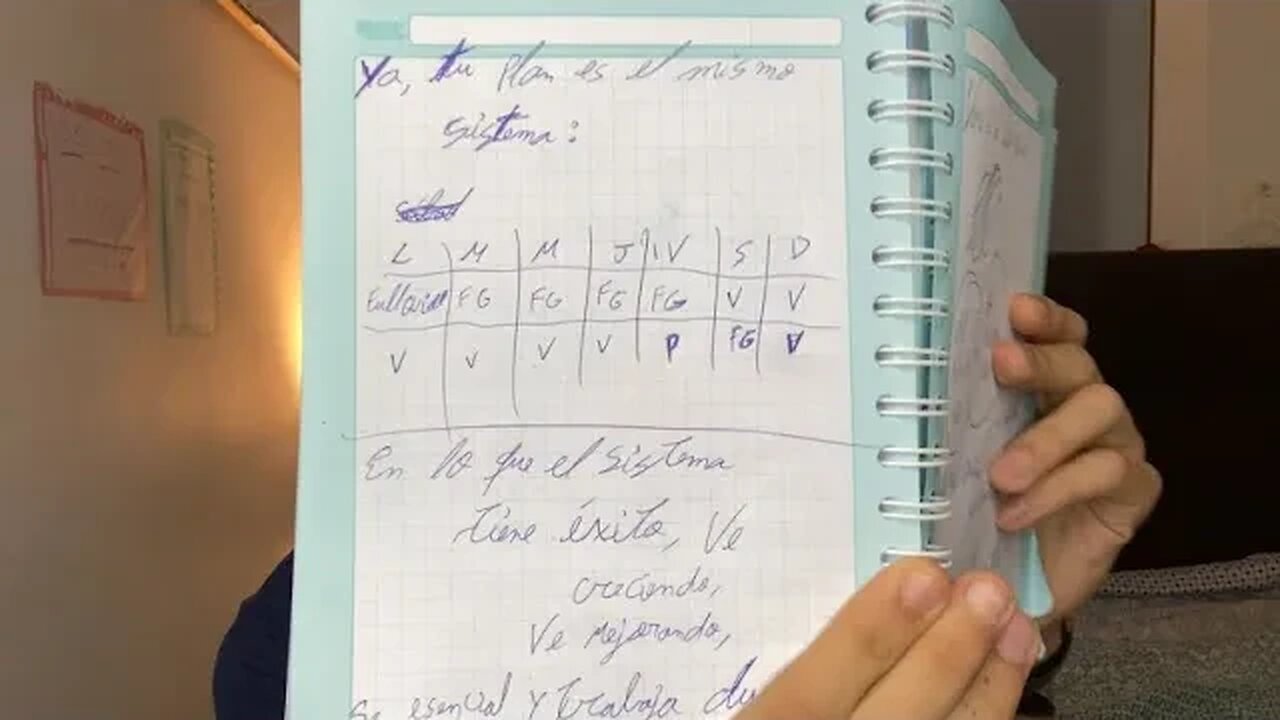 Ya, tu plan es el mismo
sistema:
L M M J V S D
FG FG FG FG V V
V V V V P FG V
En lo que el sistema
tiene éxito, Ve
creciendo,
Ve mejorando,
Se esencial y trabaja du